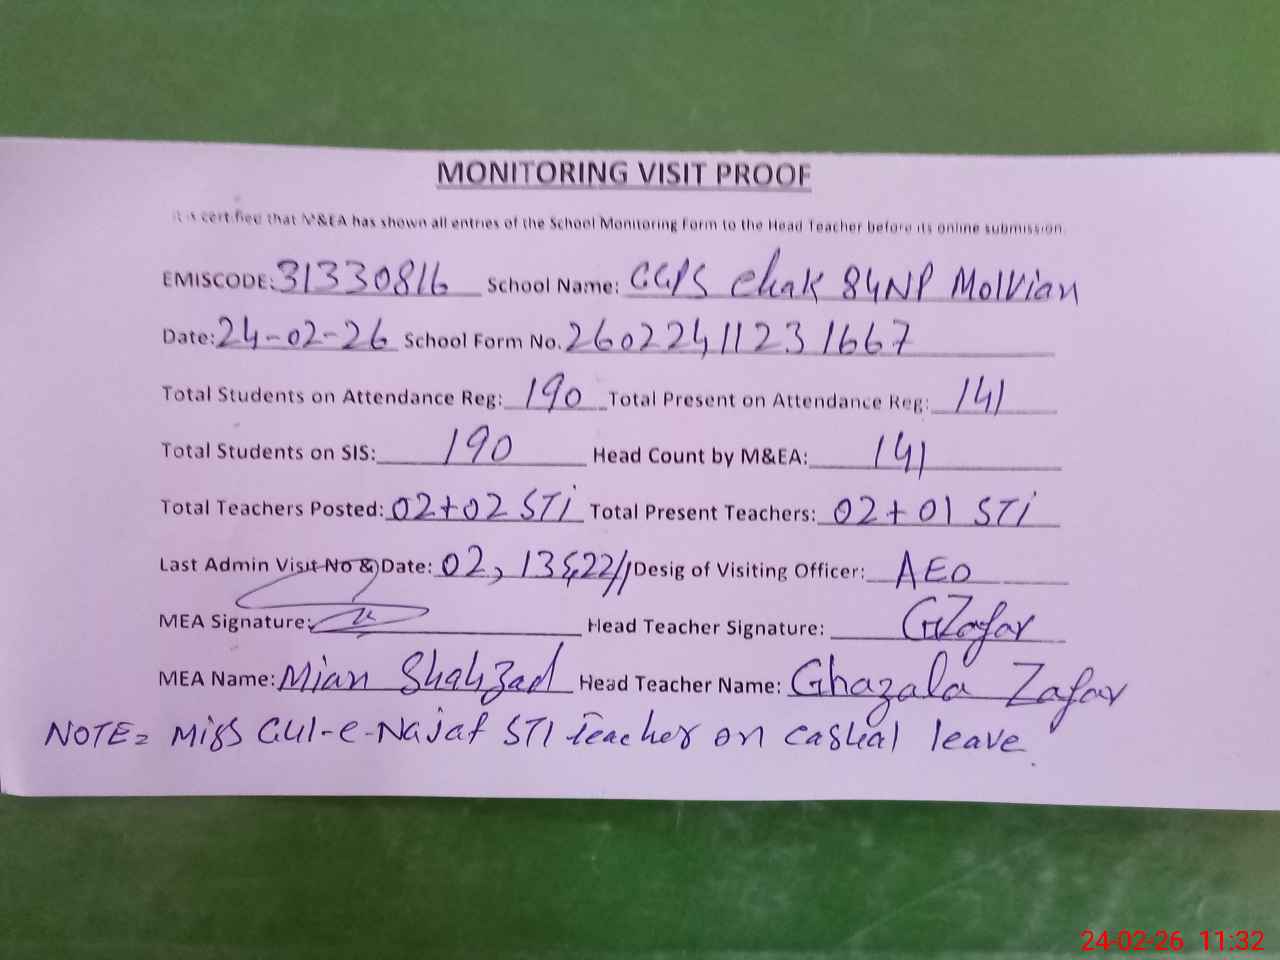 MONITORING VISIT PROOF
It is certified that M&EA has shown all entries of the School Monitoring Form to the Head Teacher before its online submission.
EMISCODE: 31330816 School Name: GGPS Chak 84NP Molvian
Date: 24-02-26 School Form No. 2602241123 1667
Total Students on Attendance Reg: 190 Total Present on Attendance Reg: 141
Total Students on SIS: 190 Head Count by M&EA: 141
Total Teachers Posted: 02+02 STi Total Present Teachers: 02+01 STi
Last Admin Visit No & Date: 02, Desig of Visiting Officer: AEO
MEA Signature: Head Teacher Signature: GZafar
MEA Name: Mian Shahzad Head Teacher Name: Ghazala Zafar
NOTE= Miss Gul-e-Najaf STI Teacher on casual leave.
24-02-26 11:32